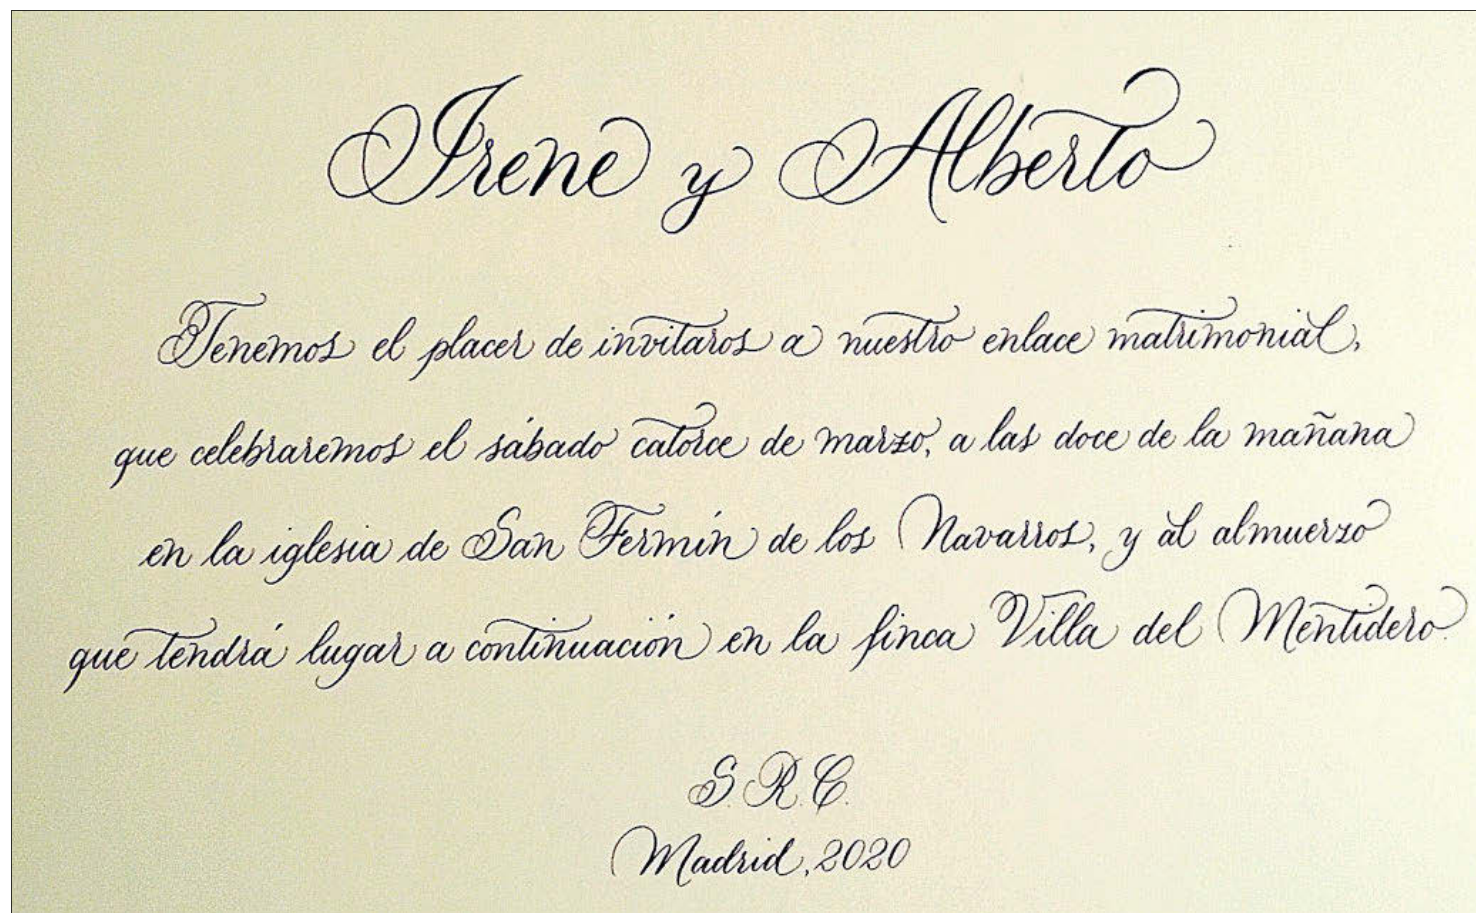 Irene y Alberto
Tenemos el placer de invitaros a nuestro enlace matrimonial,
que celebraremos el sábado catorce de marzo, a las doce de la mañana
en la iglesia de San Fermín de los Navarros, y al almuerzo
que tendrá lugar a continuación en la finca Villa del Mentidero.
S. R. C.
Madrid, 2020